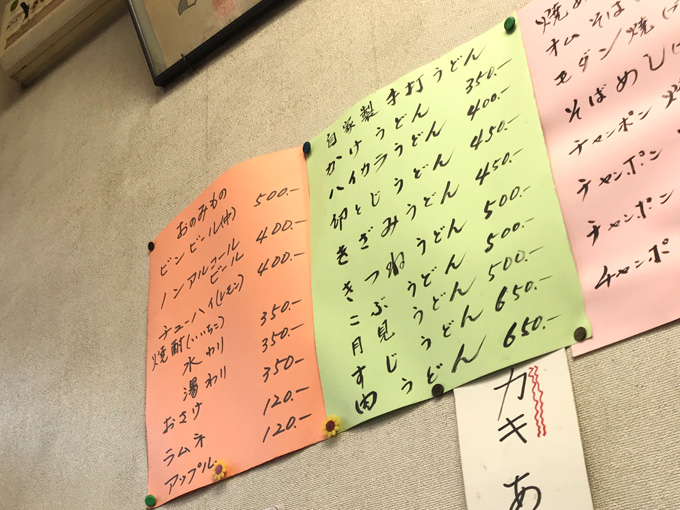 おのみもの
ビンビール(中) 500.-
ノンアルコール
ビール 400.-
チューハイ(レモン) 400.-
焼酎(いいちこ)
水わり 350.-
湯わり 350.-
おさけ 350.-
ラムネ 120.-
アップル 120.-
自家製手打うどん
かけうどん 350.-
ハイカラうどん 400.-
卵とじうどん 450.-
きざみうどん 450.-
きつねうどん 500.-
こぶうどん 500.-
月見うどん 500.-
すじうどん 650.-
肉うどん 650.-
焼め
オムそば
モダン焼
そばめし
チャンポン焼
チャンポン
チャンポン
チャンポ
カキあ